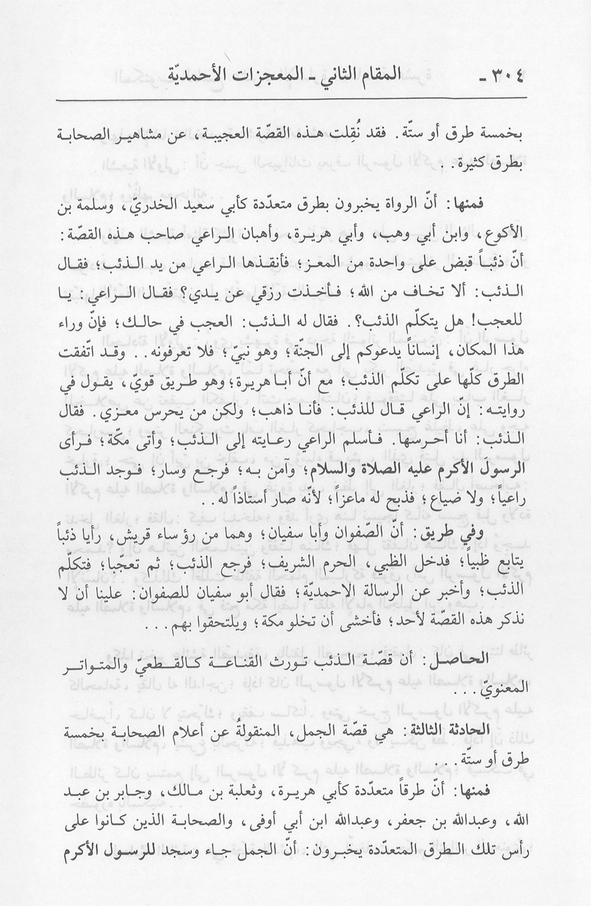 ٣٠٤ - المقام الثاني - المعجزات الأحمديّة
بخمسة طرق أو ستّة. فقد نُقِلت هـذه القصّة العجيبـة، عن مشاهيـر الصحابـة
بطرق كثيرة..
فمنها: أنّ الرواة يخبرون بطرق متعدّدة كأبي سعيد الخدريّ، وسلمة بن
الأكوع، وابن أبي وهب، وأبي هريـرة، وأهبان الـراعي صاحب هـذه القصّة:
أنّ ذئبـاً قبض على واحـدة من المعـز؛ فأنقـذها الـراعي من يـد الـذئب؛ فقـال
الـذئب: ألا تخـاف من الله؛ فـأخـذت رزقي عن يـدي؟ فقـال الـراعي: يـا
للعجب! هل يتكلّم الذئب؟. فقال له الـذئب: العجب في حالـك؛ فإنّ وراء
هـذا المكان، إنسـاناً يـدعوكم إلى الجنّـة؛ وهـو نبيّ؛ فلا تعرفونـه.. وقـد اتّفقت
الطرق كلّها على تكلّم الذئب؛ مع أنّ أبـا هريـرة؛ وهو طـريق قويّ، يقـول في
روايتـه: إنّ الراعي قـال للذئب: فـأنا ذاهب؛ ولكن من يحرس معـزي. فقال
الـذئب: أنا أحـرسها. فـأسلم الراعي رعـايته إلى الـذئب؛ وأتى مكّة؛ فـرأى
الرسولَ الأكرم عليه الصلاة والسلام؛ وآمن بـه؛ فرجـع وسار؛ فـوجد الـذئب
راعياً؛ ولا ضياع؛ فذبح له ماعزاً؛ لأنّه صار أستاذاً له..
وفي طريق: أنّ الصّفوان وأبا سفيان؛ وهما من رؤساء قريش، رأيا ذئباً
يتابع ظبياً؛ فدخل الظبي، الحرم الشريف؛ فرجع الذئب؛ ثم تعجّبا؛ فتكلّم
الذئب؛ وأخبر عن الرسالة الاحمديّة؛ فقال أبو سفيان للصفوان: علينا أن لا
نذكر هذه القصّة لأحد؛ فأخشى أن تخلو مكة؛ ويلتحقوا بهم...
الحـاصـل: أن قصّـة الـذئب تـورث القنـاعـة كـالقـطعيّ والمتـواتـر
المعنويّ...
الحادثة الثالثة: هي قصّة الجمل، المنقولةُ عن أعلام الصحابـة بخمسة
طرق أو ستّة...
فمنها: أنّ طرقـاً متعدّدة كأبي هريرة، وثعلبة بن مـالك، وجـابر بن عبـد
الله، وعبدالله بن جعفر، وعبدالله ابن أبي أوفى، والصحابـة الذين كـانوا على
رأس تلك الـطرق المتعدّدة يخبـرون: أنّ الجمل جـاء وسجد للرسـول الأكرم